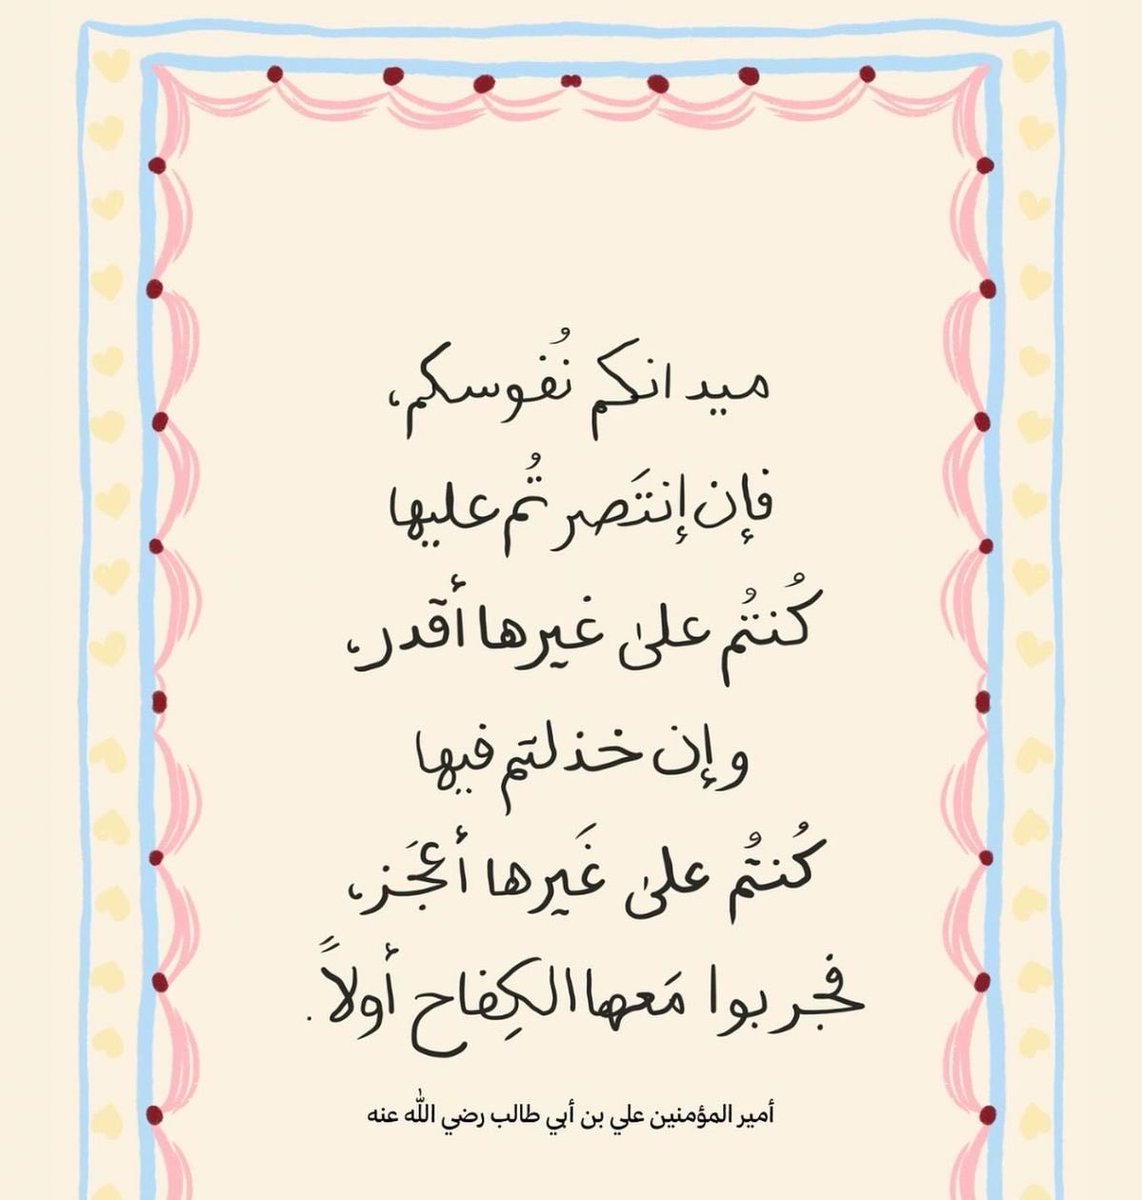 ميدانكم نُفوسكم،
فإن إنتَصرتُم عليها
كُنتُم على غيرها أقدر،
وإن خذلتم فيها
كُنتُم على غَيرها أعجَز،
فجربوا مَعها الكِفاح أولاً.
أمير المؤمنين علي بن أبي طالب رضي الله عنه